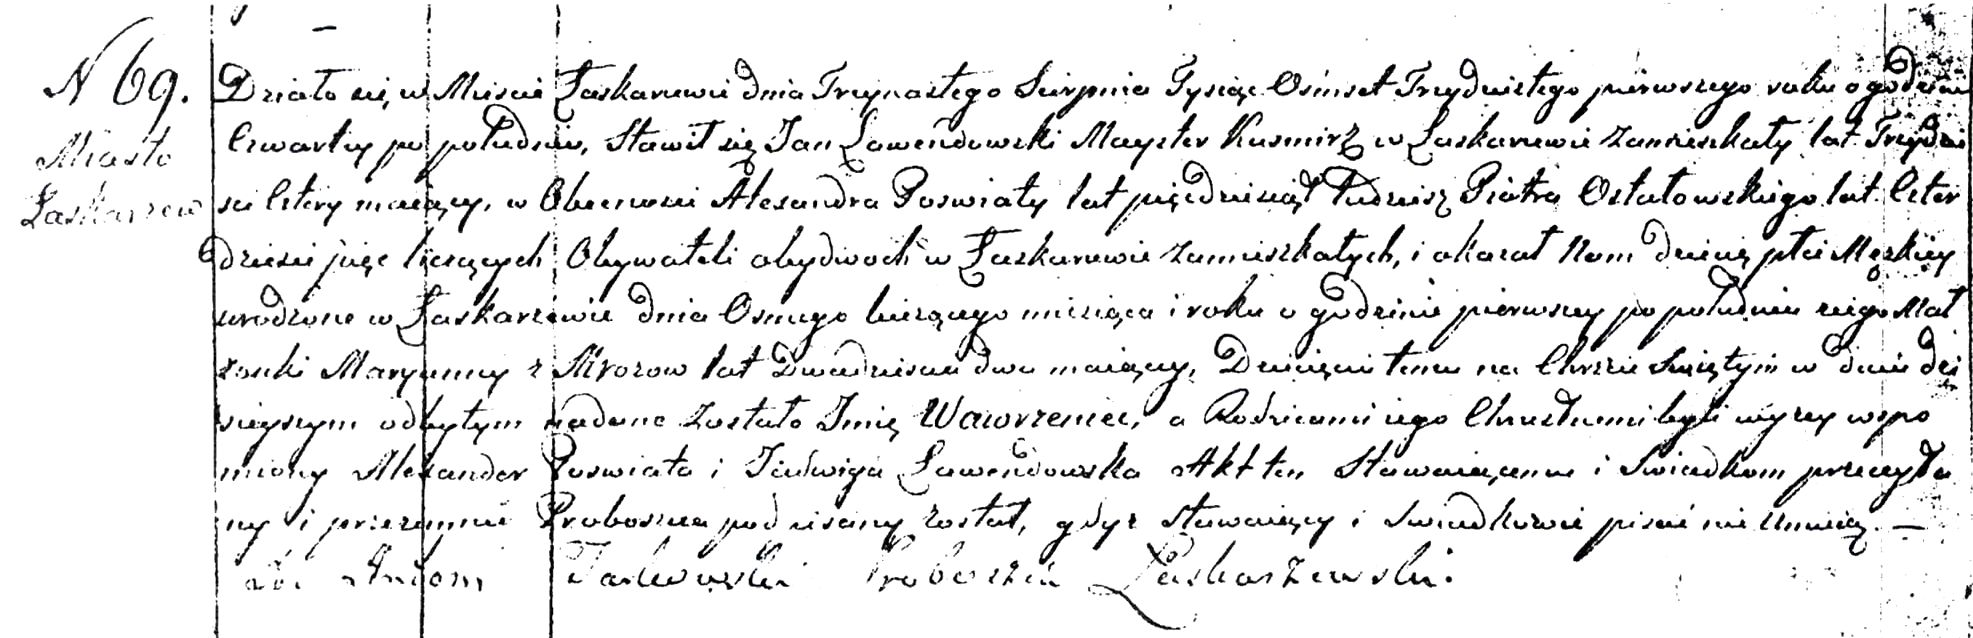 N 69.
Miasto
Łaskarzew
Działo się w Mieście Łaskarzewie dnia Trzynastego Sierpnia Tysiąc Ośmset Trzydziestego pierwszego roku o godzinie
Czwartey po południu, Stawił się Jan Lawendowski Mayster Kuśmirz w Łaskarzewie zamieszkały lat Trzydzie
ści Cztery maiący, w Obecności Alexandra Poswiaty lat pięćdziesiąt tudziesz Piotra Ostałowskiego lat Czter
dzieści pięć liczących Obywateli obydwoch w Łaskarzewie zamieszkałych, i okazał Nam dziecię płci Męzkiey
urodzone w Łaskarzewie dnia Osmego bieżącego miesiąca i roku o godzinie pierwszey po południu z iego Mał
żonki Maryanny z Mrozow lat Dwadzieścia dwa maiącey, Dziecięciu temu na Chrzcie Świętym w dniu dzi
sieyszym odbytym nadane zostało Imię Wawrzeniec, a Rodzicami iego Chrzestnemi byli wyżey wspo
miony Alexander Poswiata i Jadwiga Lawendowska Akt ten Stawaiącemu i Świadkom przeczyta
ny i przezemnie Proboszcza podpisany został, gdyż Stawaiący i Swiadkowie pisać nie umieią. —
Antoni Proboszcz Łaskarzewski.